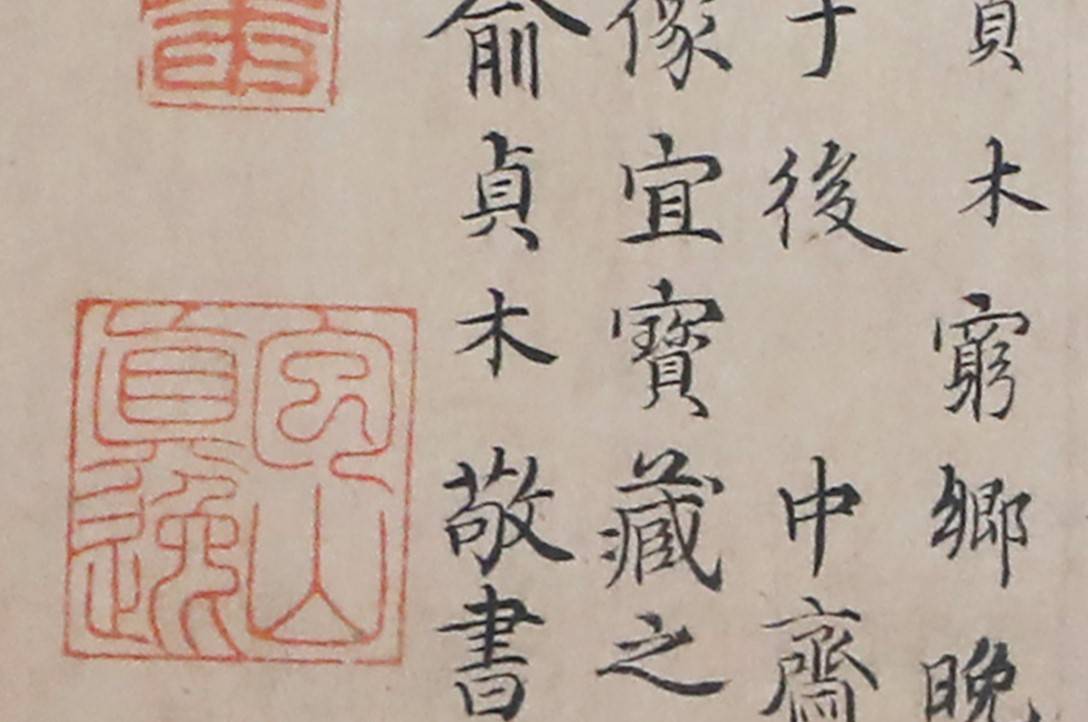 貞木窮鄉晚
于後 中齋
像宜寶藏之
俞貞木敬書